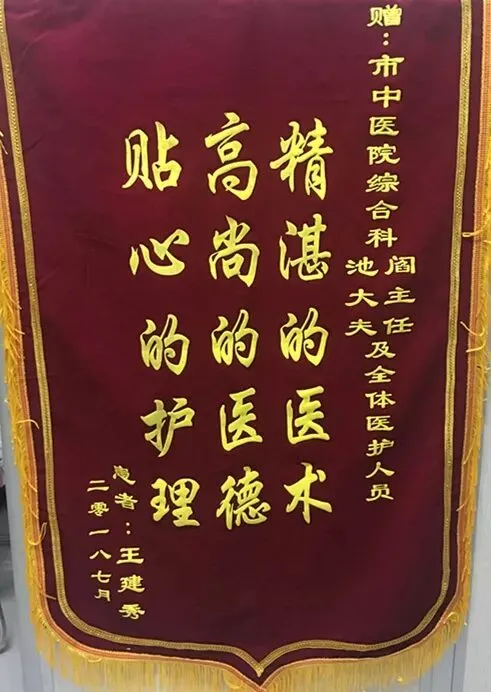 赠：市中医院综合科阎主任池大夫及全体医护人员
精湛的医术
高尚的医德
贴心的护理
患者：王建秀
二零一八七月